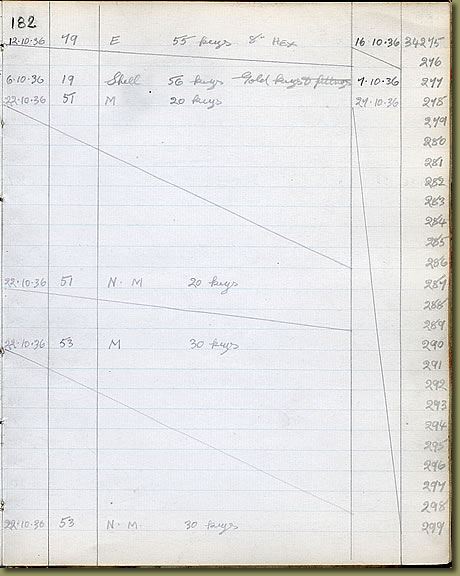 182
12.10.36 79 E 55 keys 8" HEX 16.10.36 34275
276
6.10.36 19 Shell 56 keys Gold keys & fittings 7.10.36 277
22.10.36 51 M 20 keys 27.10.36 278
279
280
281
282
283
284
285
286
22.10.36 51 N.M 20 keys 287
288
289
22.10.36 53 M 30 keys 290
291
292
293
294
295
296
297
298
22.10.36 53 N.M. 30 keys 299